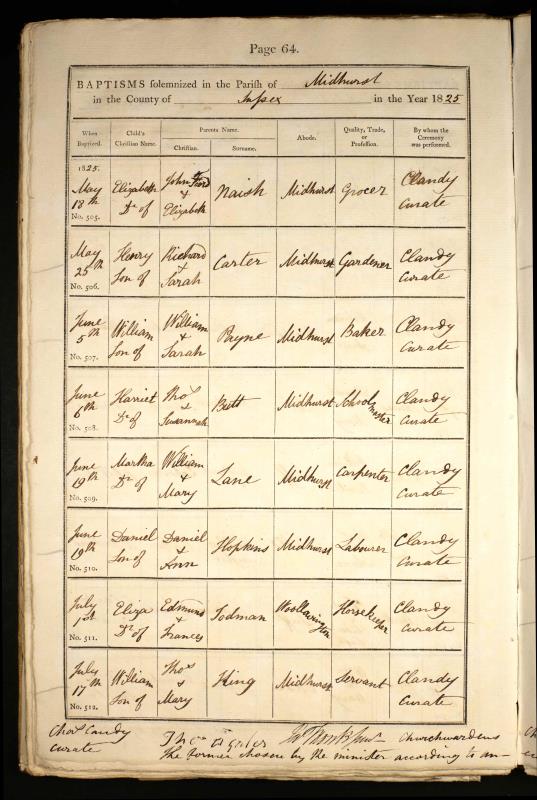 Page 64.
BAPTISMS solemnized in the Parish of Midhurst
in the County of Sussex in the Year 1825
When Baptized.
Child's Christian Name.
Parents Name.
Christian.
Surname.
Abode.
Quality, Trade, or Profession.
By whom the Ceremony was performed.
1825.
May 18th
No. 505.
Elizabeth Dr of
John & Elizabeth
Naish
Midhurst
Grocer
Clandy Curate
May 25th
No. 506.
Henry Son of
Richard & Sarah
Carter
Midhurst
Gardener
Clandy Curate
June 5th
No. 507.
William Son of
William & Sarah
Payne
Midhurst
Baker
Clandy Curate
June 6th
No. 508.
Harriet Dr of
Thos & Susannah
Butt
Midhurst
Schoolmaster
Clandy Curate
June 19th
No. 509.
Martha Dr of
William & Mary
Lane
Midhurst
Carpenter
Clandy Curate
June 19th
No. 510.
Daniel Son of
Daniel & Ann
Hopkins
Midhurst
Labourer
Clandy Curate
July 1st
No. 511.
Eliza Dr of
Edmund & Frances
Todman
Woollavington
Horsekeeper
Clandy Curate
July 17th
No. 512.
William Son of
Thos & Mary
King
Midhurst
Servant
Clandy Curate
Chas Candy
Curate
Churchwardens
The former chosen by the minister according to an-